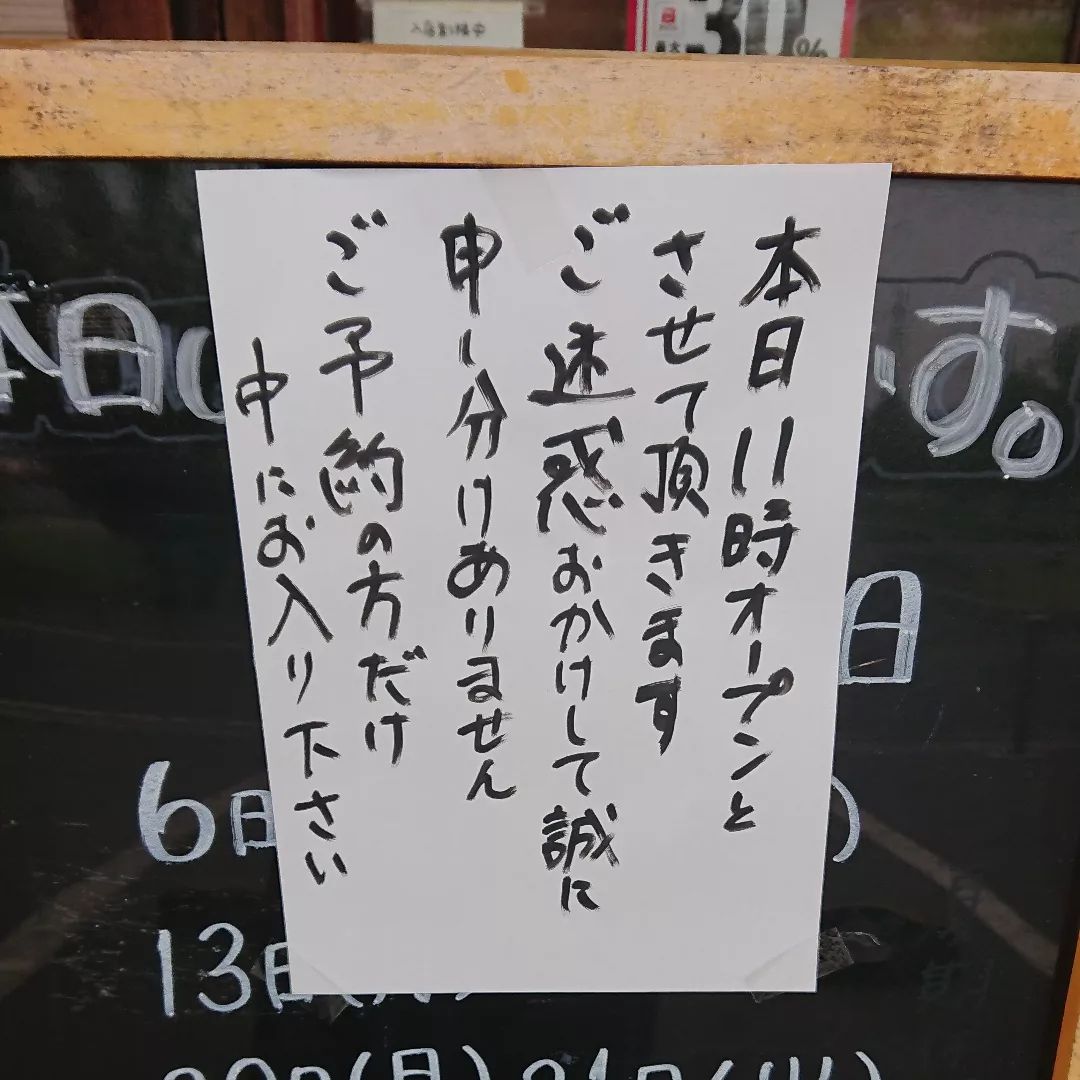 入店お待中
最大
30%
本日11時オープンと
させて頂きます
ご迷惑おかけして誠に
申し分けありません
ご予約の方だけ
中にお入り下さい
本日
す。
日
6日
13日(月)
20日(月)21日(火)